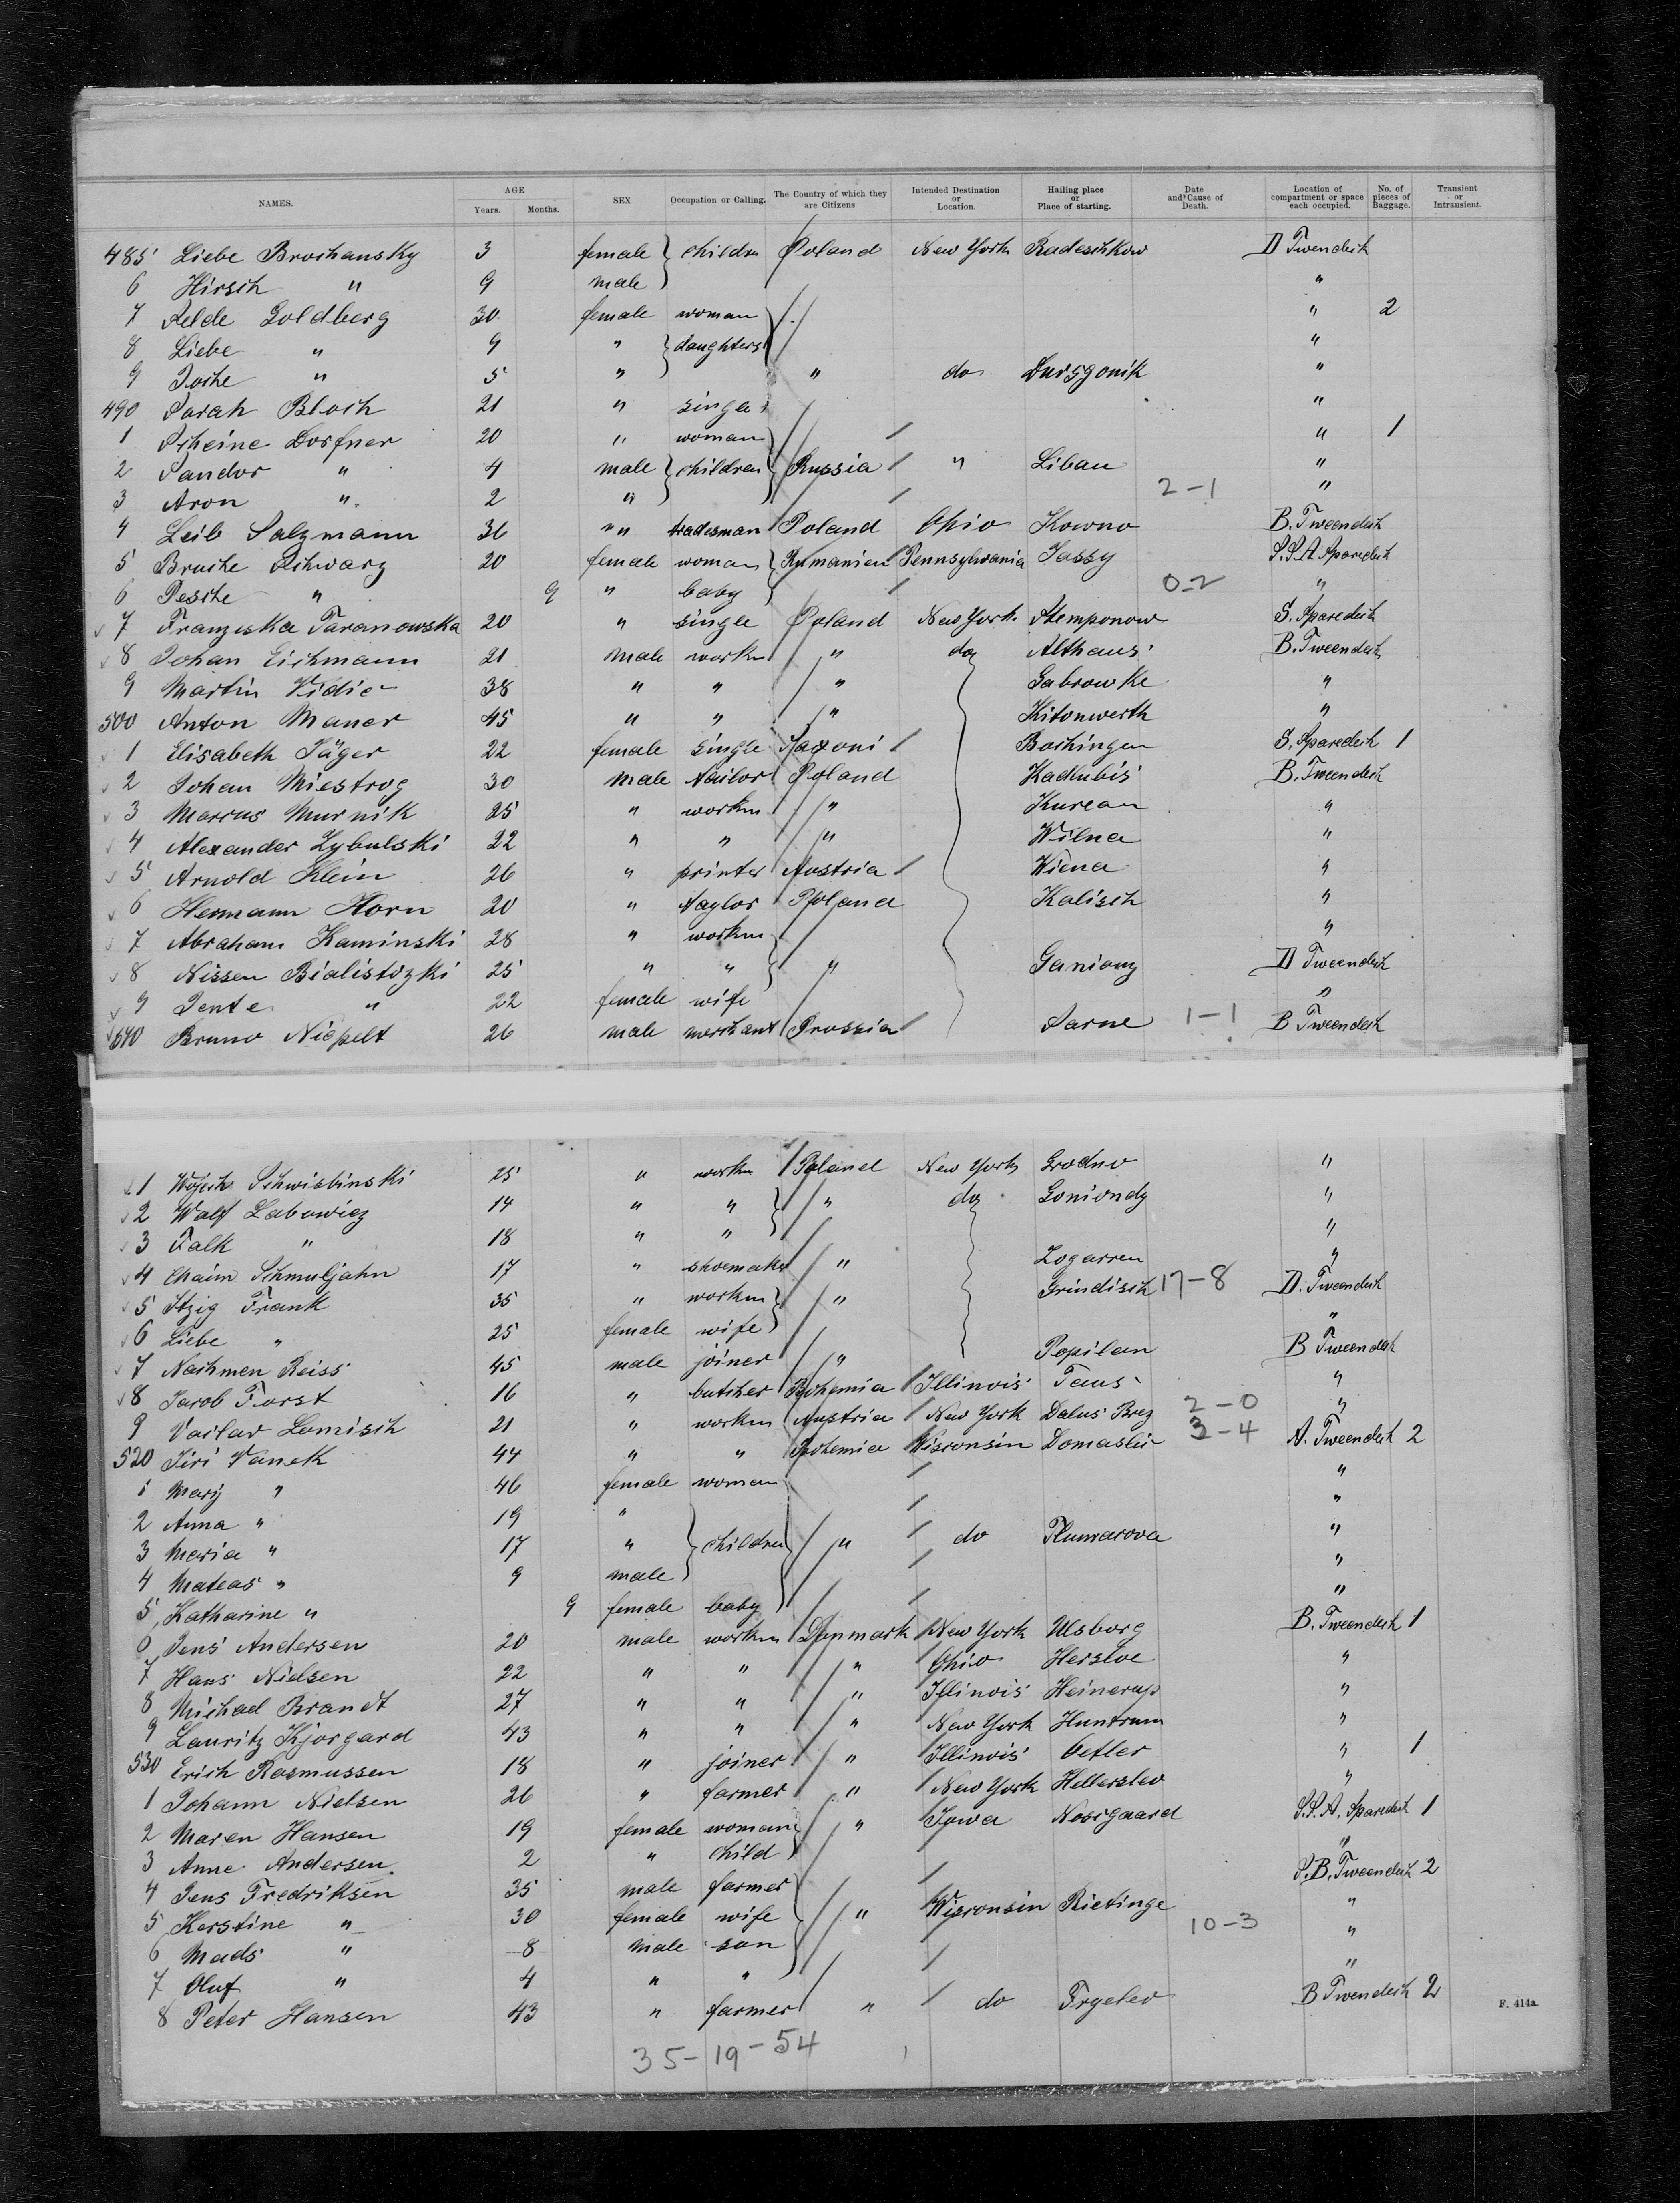 NAMES. AGE Years. Months. SEX Occupation or Calling. The Country of which they are Citizens Intended Destination or Location. Hailing place or Place of starting. Date and Cause of Death. Location of compartment or space each occupied. No. of pieces of Baggage. Transient or Intransient.
485 Liebe Brochansky 3 female children Poland New York Radeschkow D Tweendeck
6 Hirsch " 9 male "
7 Aelde Goldberg 30 female woman " 2
8 Liebe " 9 " daughters "
9 Poche " 5 " " do "
490 Sarah Bloch 21 " single "
1 Scheine Dorfner 20 " woman " 1
2 Sandor " 4 male children Russia " Libau "
3 Aron " 2 " 2-1 "
4 Leib Salzmann 36 "" tradesman Poland Ohio Kowno B. Tweendeck
5 Bruche Schwarz 20 female woman Rumanien Pennsylvania Jassy S.S.A Sparedeck
6 Pesche " 9 " baby 0-2 "
7 Franziska Taranowska 20 " single Poland New York Stemponow S. Sparedeck
8 Johan Eichmann 21 male workm " do Althaus B. Tweendeck
9 Martin Vidic 38 " " " Gabrowke "
500 Anton Maner 45 " " " Kitonwerth "
1 Elisabeth Jäger 22 female single Saxoni Bochingen S. Sparedeck 1
2 Johan Miestrog 30 male tailor Poland Kadlubis B. Tweendeck
3 Marcus Murnik 25 " workm " Kurean "
4 Alexander Zybulski 22 " " " Wilna "
5 Arnold Klein 26 " printer Austria Wiena "
6 Hermann Horn 20 " taylor Poland Kalisch "
7 Abraham Kaminski 28 " workm "
8 Nissen Bialistozki 25 " " " Ganiong D Tweendeck
9 Jente " 22 female wife "
510 Bruno Niepelt 26 male merchant Prussia Sarne 1-1 B Tweendeck
1 Wojech Schwisbinski 25 " workm Poland New York Grodno "
2 Wolf Labowicz 14 " " " do Goniondz "
3 Falk " 18 " " "
4 Chaim Schmuljahn 17 " shoemaker " Zogarren "
5 Itzig Frank 35 " workm " Grindisch 17-8 D. Tweendeck
6 Liebe " 25 female wife "
7 Nachmen Reiss 45 male joiner " Popilan B Tweendeck
8 Jacob Forst 16 " butcher Bohemia Illinois Taus "
9 Vaclav Lomisch 21 " workm Austria New York Dalus Brez 2-0 "
520 Jiri Vanek 44 " " Bohemia Wisconsin Domaslic 3-4 A. Tweendeck 2
1 Mary " 46 female woman "
2 Anna " 19 " "
3 Maria " 17 " children " do Plumarova "
4 Mateas " 9 male "
5 Katharine " 9 female baby "
6 Jens Andersen 20 male workm Danmark New York Ulsborg B. Tweendeck 1
7 Hans Nielsen 22 " " " Ohio Hersloe "
8 Michael Brandt 27 " " " Illinois Heinerup "
9 Lauritz Kjorgard 43 " " " New York Huntrum "
530 Erich Rasmussen 18 " joiner " Illinois Oetler " 1
1 Johann Nielsen 26 " farmer " New York Hellerslev "
2 Maren Hansen 19 female woman " Iowa Norrgaard S.S.A. Sparedeck 1
3 Anne Andersen 2 " child "
4 Jens Fredriksen 35 male farmer S.B. Tweendeck 2
5 Kerstine " 30 female wife " Wisconsin Rietinge "
6 Mads " 8 male son 10-3 "
7 Oluf " 4 " " "
8 Peter Hansen 43 " farmer " do Frgelev B Tweendeck 2
F. 414a.
35-19-54